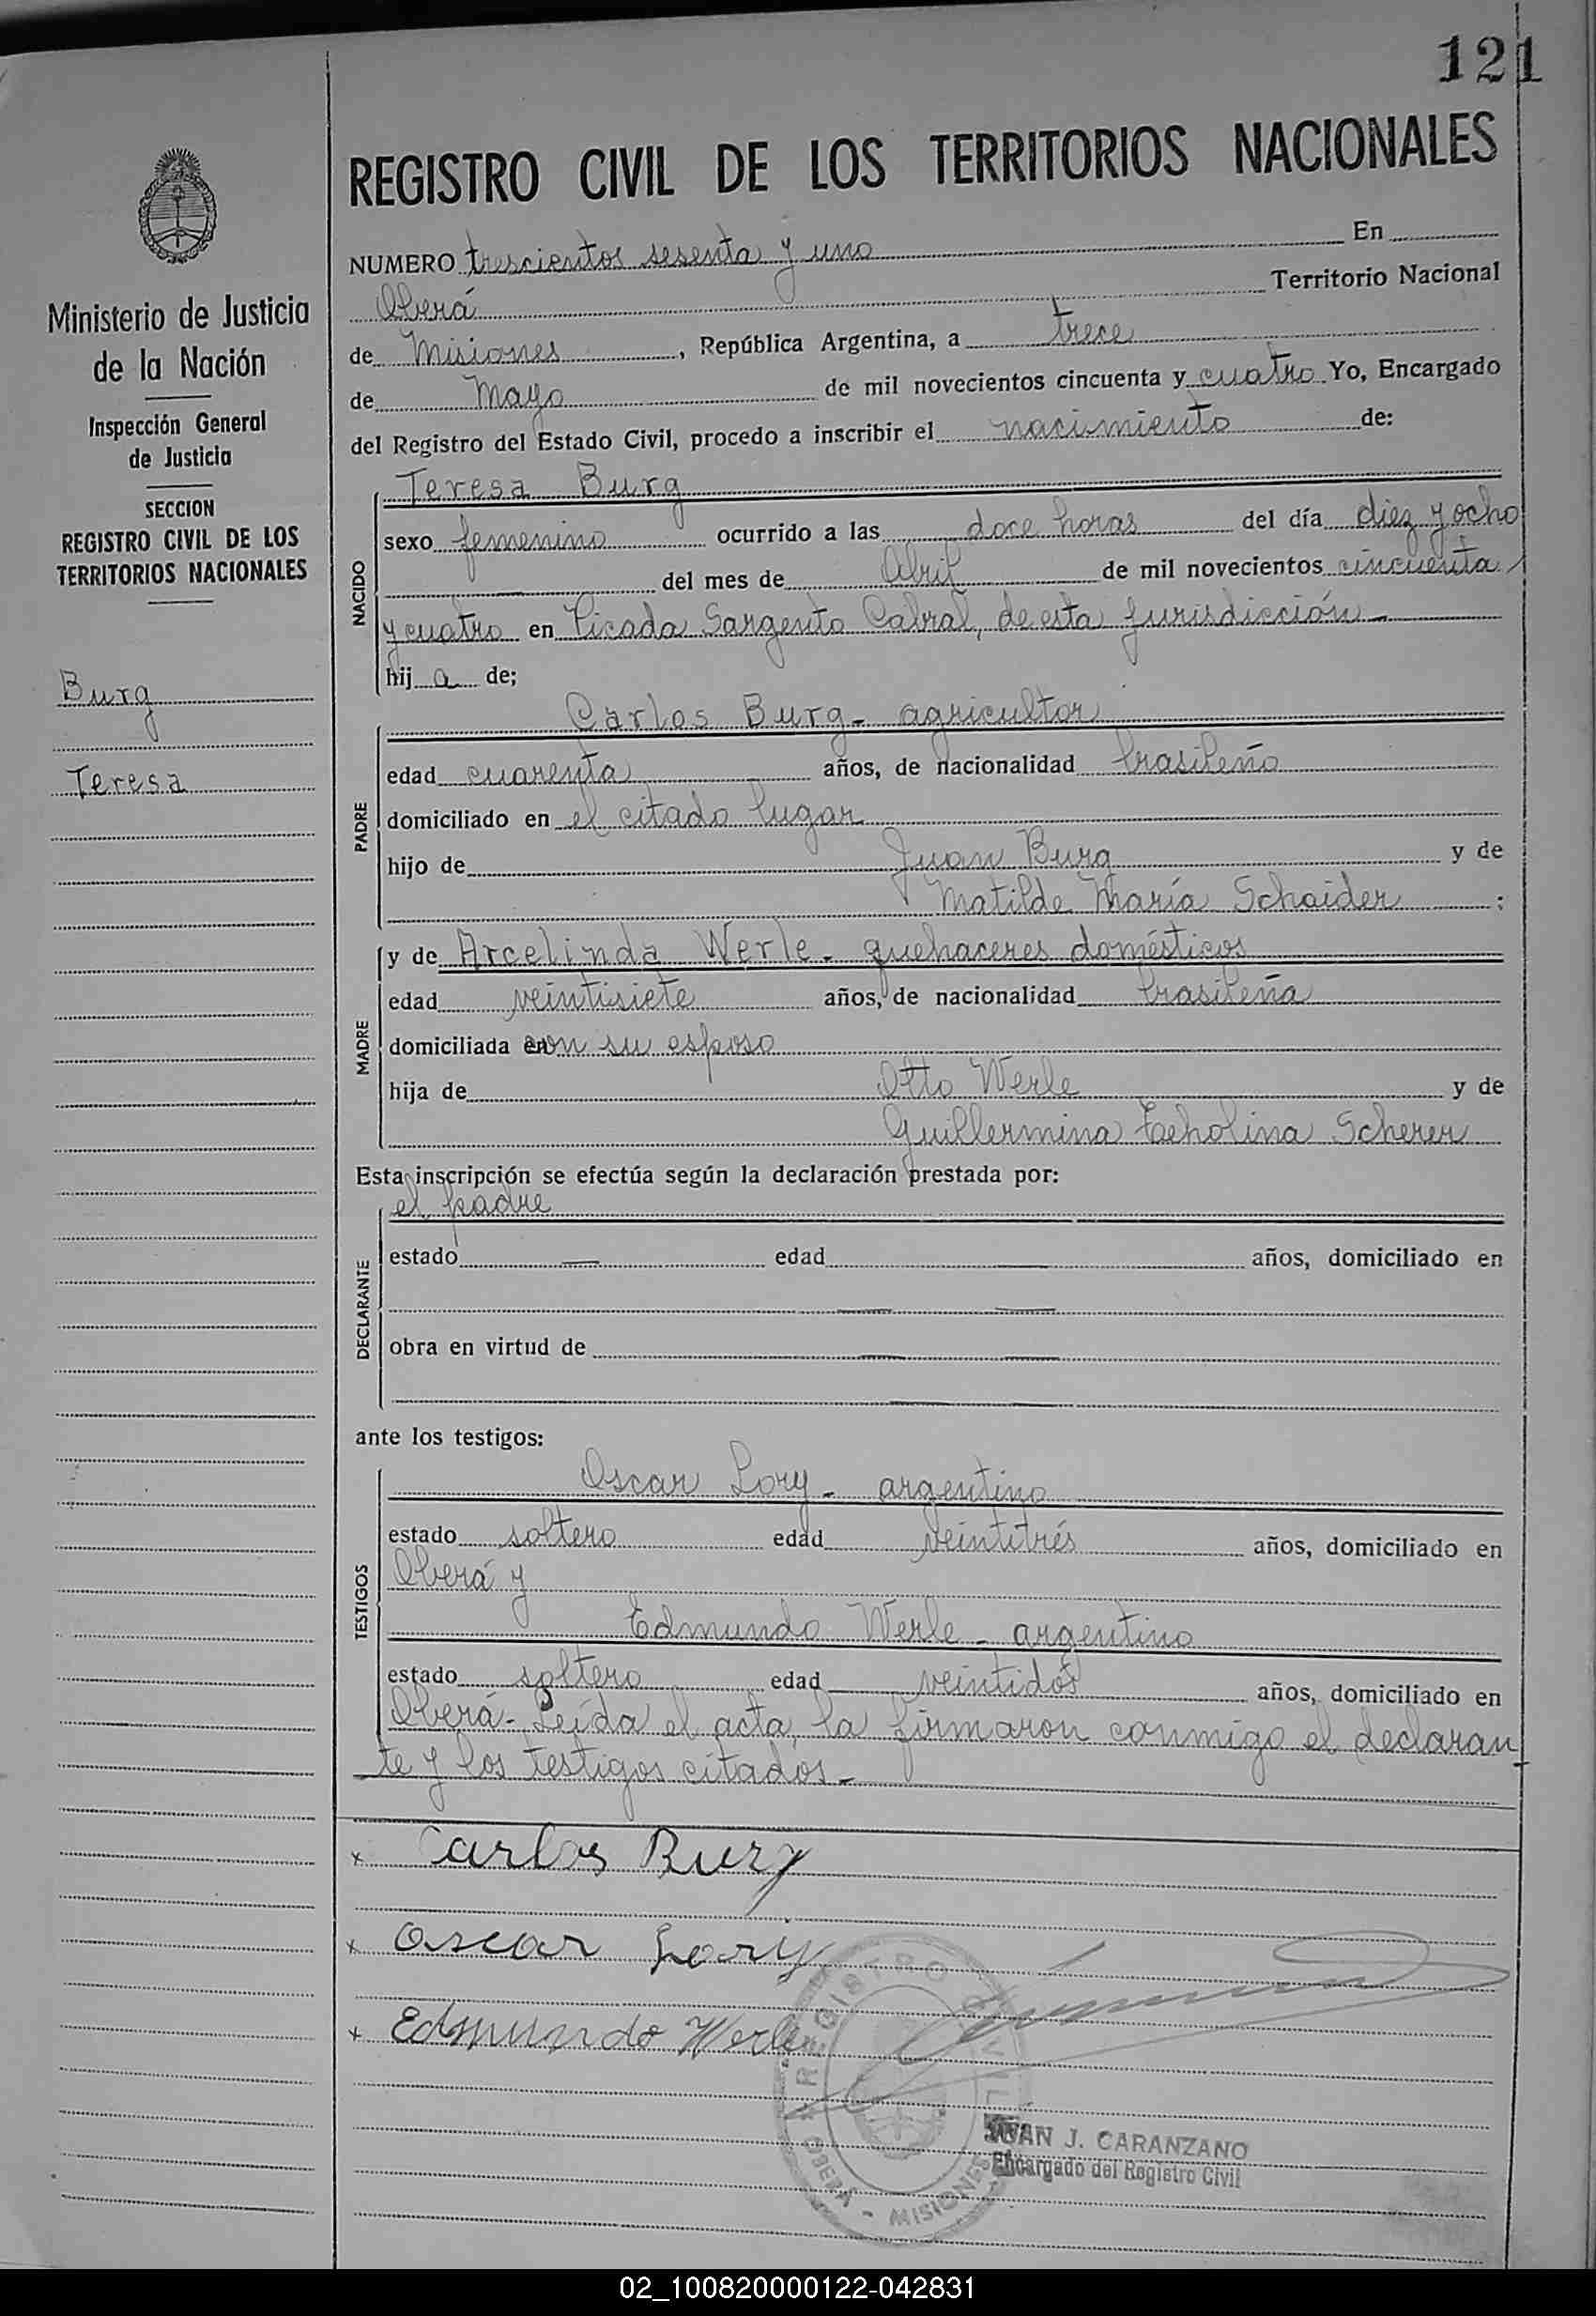 121
REGISTRO CIVIL DE LOS TERRITORIOS NACIONALES
Ministerio de Justicia
de la Nación
Inspección General
de Justicia
SECCION
REGISTRO CIVIL DE LOS
TERRITORIOS NACIONALES
Burg
Teresa
NUMERO trescientos sesenta y uno En
Oberá Territorio Nacional
de Misiones, República Argentina, a trece
de Mayo de mil novecientos cincuenta y cuatro Yo, Encargado
del Registro del Estado Civil, procedo a inscribir el nacimiento de:
NACIDO
Teresa Burg
sexo femenino ocurrido a las doce horas del día diez y ocho
— del mes de Abril de mil novecientos cincuenta
y cuatro en Picada Sargento Cabral, de esta jurisdicción -
hij a de;
PADRE
Carlos Burg - agricultor
edad cuarenta años, de nacionalidad brasileño
domiciliado en el citado lugar
hijo de Juan Burg y de
Matilde María Schaider :
MADRE
y de Arcelinda Werle - quehaceres domésticos
edad veintisiete años, de nacionalidad brasileña
domiciliada en con su esposo
hija de Otto Werle y de
Guillermina Scherer
Esta inscripción se efectúa según la declaración prestada por:
DECLARANTE
el padre
estado — edad — años, domiciliado en
— —
obra en virtud de — —
—
ante los testigos:
TESTIGOS
Oscar Lory - argentino
estado soltero edad veintitrés años, domiciliado en
Oberá y
Edmundo Werle - argentino
estado soltero edad veintidós años, domiciliado en
Oberá - Leída el acta, la firmaron conmigo el declaran
te y los testigos citados -
x Carlos Burg
x Oscar Lory
x Edmundo Werle
REGISTRO CIVIL
OBERA - MISIONES
JUAN J. CARANZANO
Encargado del Registro Civil
02_100820000122-042831